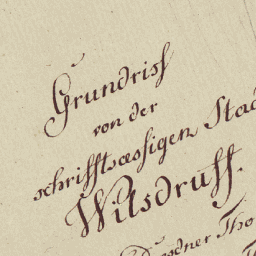 Grundriss
von der
schrifftsæssigen Stad
Wilsdruff.
Dresdner Tho